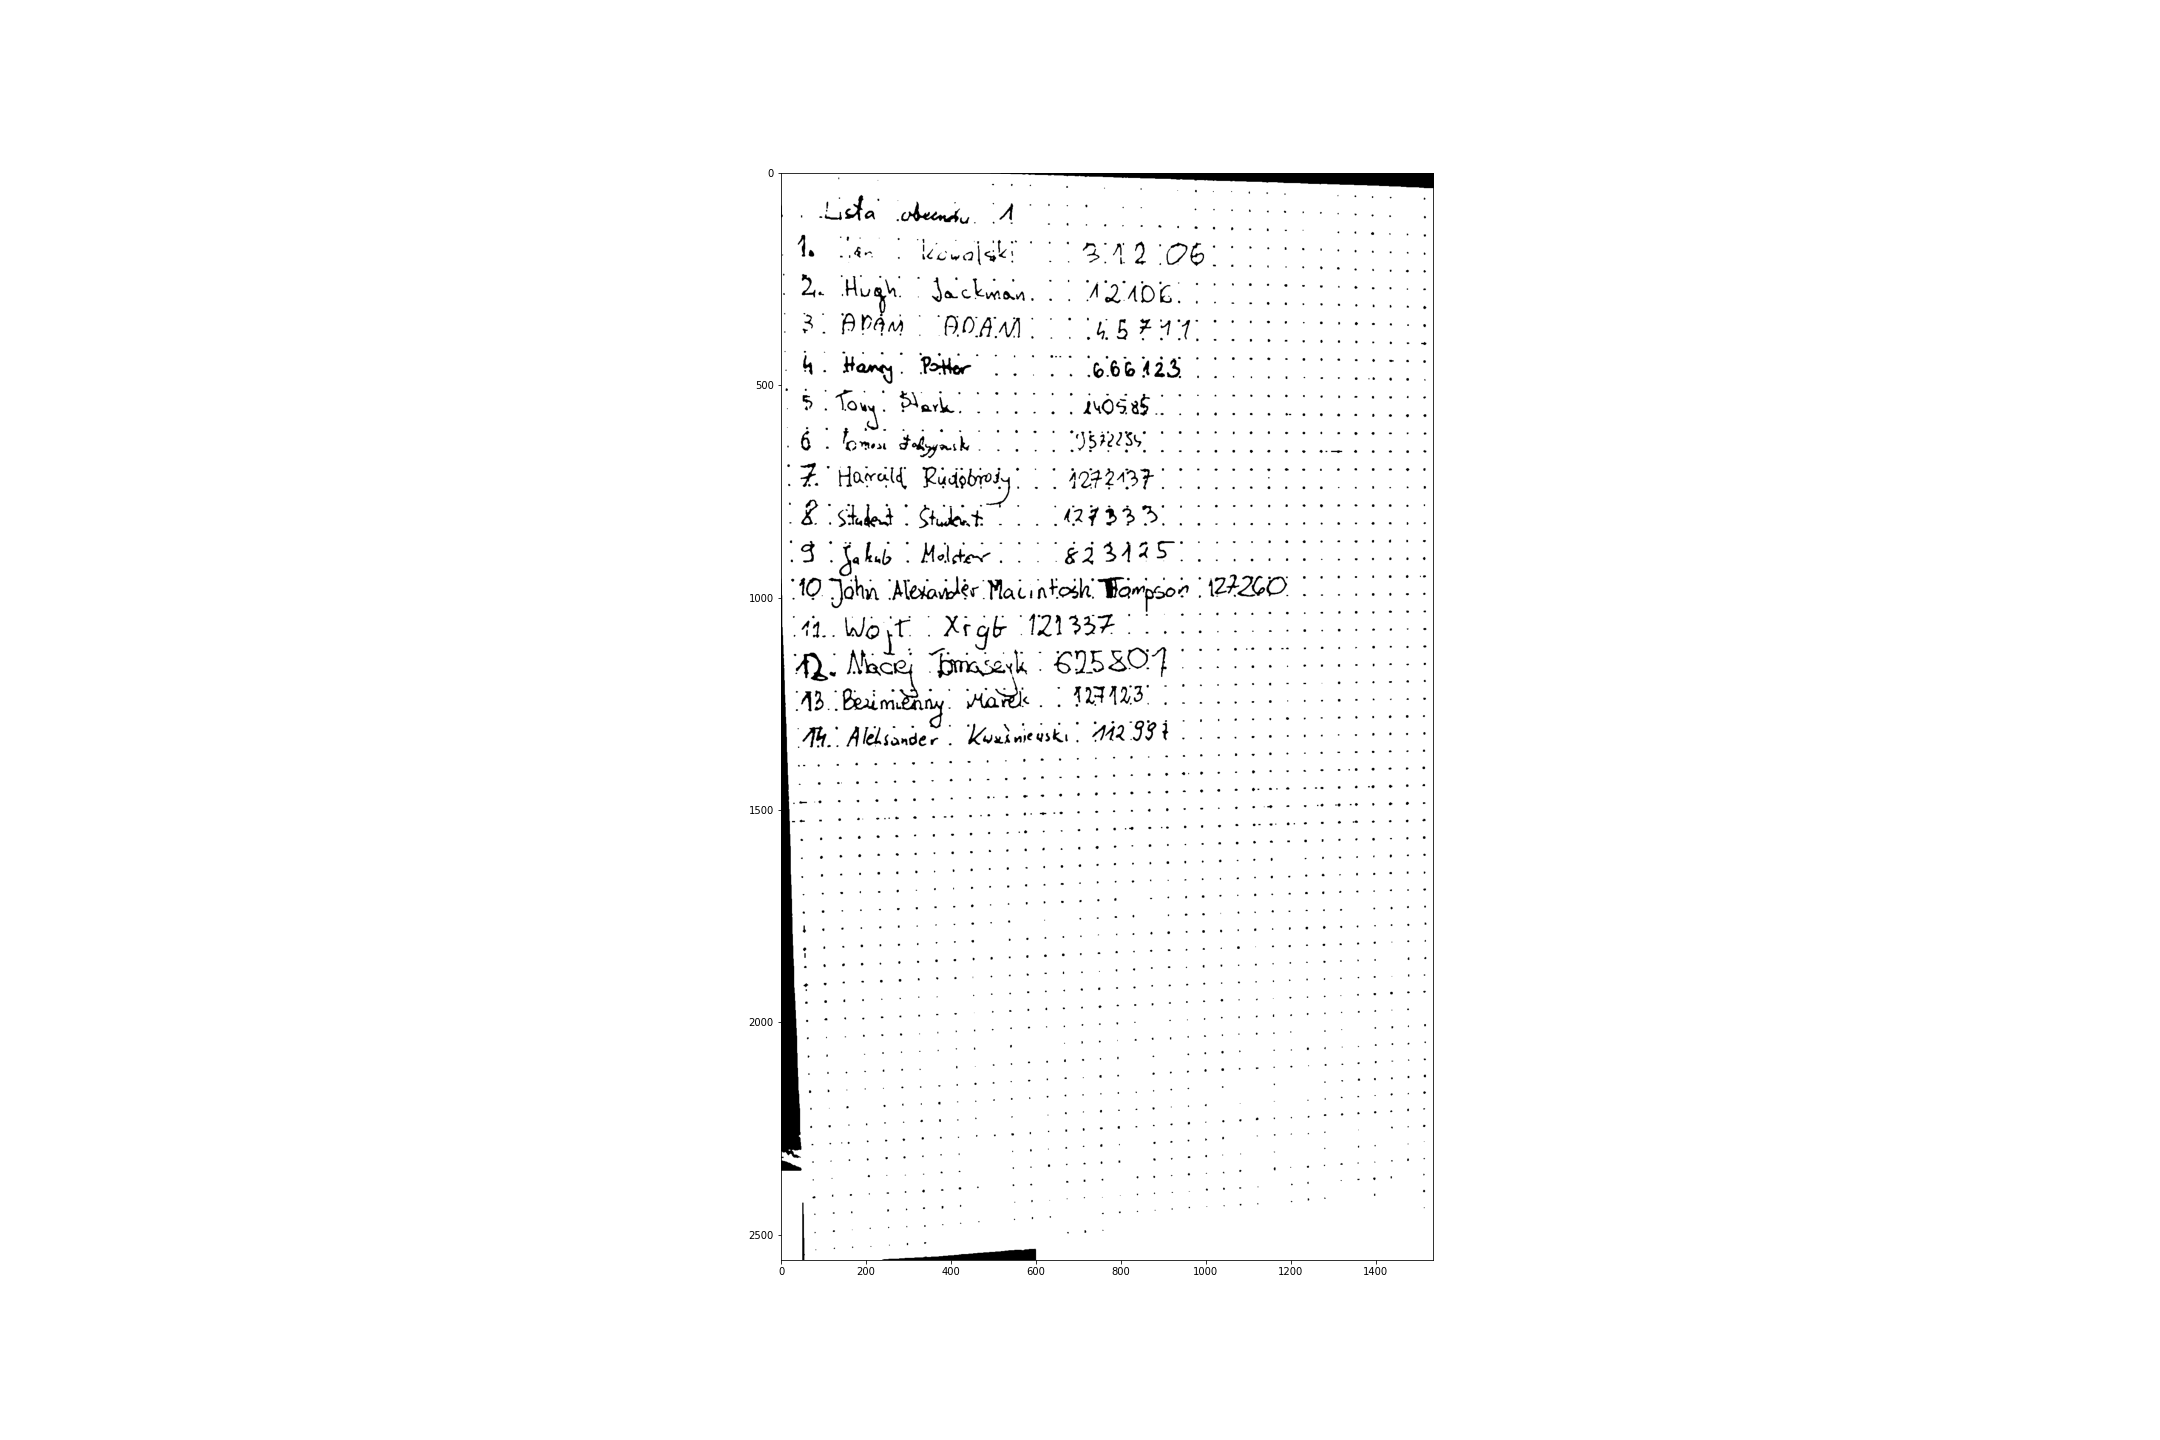 Lista obecności 1
1. Jan Kowalski 31206
2. Hugh Jackman 12106
3. ADAM ADAM 45711
4. Harry Potter 666123
5. Tony Stark 140585
6
7. Harald Rudobrody 1272137
8. Student Student 127333
9 Jakub Molster 823125
10 John Alexander Macintosh Thompson 127260
11. Wojt Xrgb 121337
12. Maciej Tomaszyk 625801
13. Bezimienny Marek 127123
14. Aleksander Kwaśniewski 112997
0
500
1000
1500
2000
2500
0 200 400 600 800 1000 1200 1400